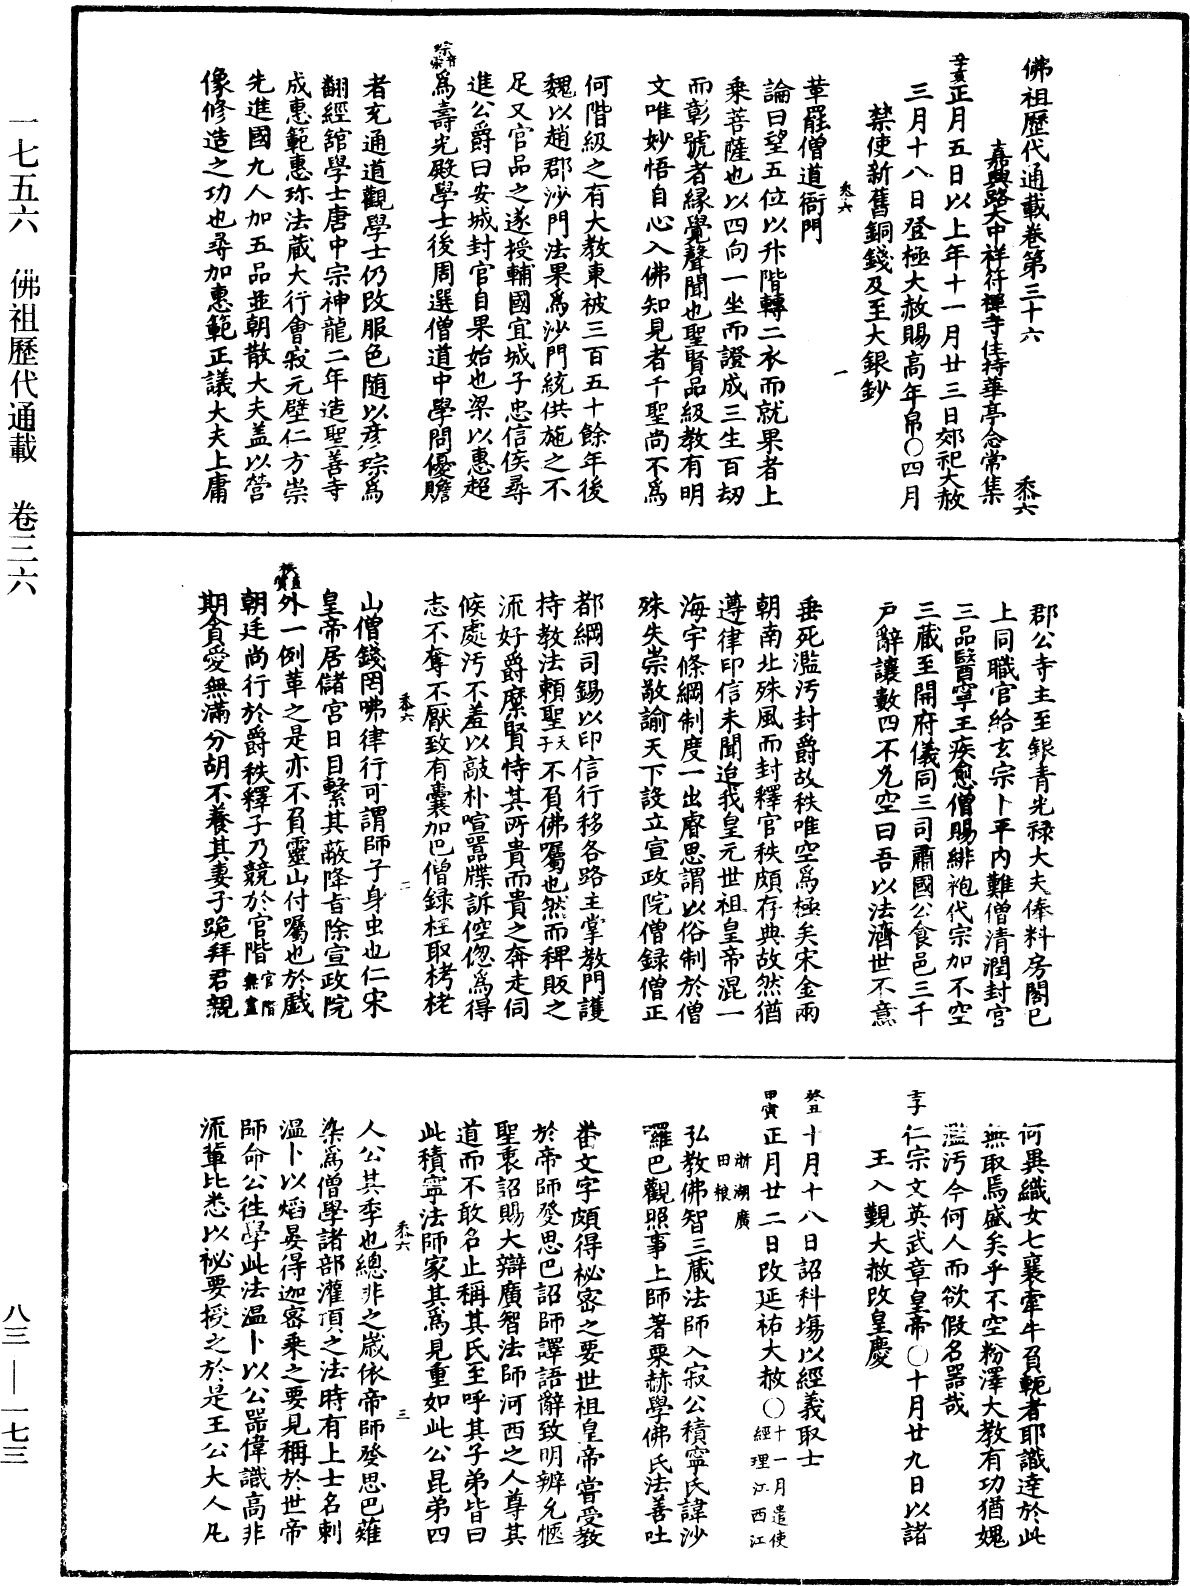 佛祖歷代通載卷第三十六 黍六
嘉興路大中祥符禪寺住持華亭念常集
辛亥正月五日以上年十一月廿三日郊祀大赦
三月十八日登極大赦賜高年帛○四月
禁使新舊銅錢及至大銀鈔
黍六 一
革罷僧道衙門
論曰望五位以升階轉二衣而就果者上
乘菩薩也以四向一坐而證成三生百劫
而彰號者緣覺聲聞也聖賢品級教有明
文唯妙悟自心入佛知見者千聖尚不為
何階級之有大教東被三百五十餘年後
魏以趙郡沙門法果為沙門統供施之不
足又官品之遂授輔國宜城子忠信侯尋
進公爵曰安城封官自果始也梁以惠超
為壽光殿學士後周選僧道中學問優贍
者充通道觀學士仍改服色隨以彥琮為
翻經舘學士唐中宗神龍二年造聖善寺
成惠範惠珎法藏大行會寂元壁仁方崇
先進國九人加五品並朝散大夫盖以營
像修造之功也尋加惠範正議大夫上庸
郡公寺主至銀青光祿大夫俸料房閤已
上同職官給玄宗卜平內難僧清潤封官
三品醫寧王疾愈僧賜緋袍代宗加不空
三藏至開府儀同三司肅國公食邑三千
戶辭讓數四不允空曰吾以法濟世不意
垂死濫污封爵故秩唯空為極矣宋金兩
朝南北殊風而封釋官秩頗存典故然猶
遵律印信未聞迨我皇元世祖皇帝混一
海宇條綱制度一出睿思謂以俗制於僧
殊失崇敬諭天下設立宣政院僧錄僧正
都綱司錫以印信行移各路主掌教門護
持教法賴聖天子不負佛囑也然而稗販之
流好爵縻賢恃其所貴而貴之奔走伺
候處污不羞以敲朴喧囂牒訴倥傯為得
志不奪不厭致有囊加巴僧錄枉取栲栳
黍六 二
山僧錢罔咈律行可謂師子身虫也仁宋
皇帝居儲宮日目繫其蔽降旨除宣政院
外一例革之是亦不負靈山付囑也於戲
朝廷尚行於爵秩釋子乃競於官階官階無盡
期貪愛無滿分胡不養其妻子跪拜君親
何異織女七襄牽牛負軛者耶識達於此
無取焉盛矣乎不空粉澤大教有功猶媿
濫污今何人而欲假名器哉
壬子仁宗文英武章皇帝○十月廿九日以諸
王入覲大赦改皇慶
癸丑十月十八日詔科塲以經義取士
甲寅正月廿二日改延祐大赦○十一月遣使經理江西江浙湖廣田粮
弘教佛智三藏法師入寂公積寧氏諱沙
囉巴觀照事上師著栗赫學佛氏法善吐
畨文字頗得祕密之要世祖皇帝嘗受教
於帝師癹思巴詔師譯語辭致明辨允愜
聖衷詔賜大辯廣智法師河西之人尊其
道而不敢名止稱其氏至呼其子弟皆曰
此積寧法師家其為見重如此公昆弟四
黍六 三
人公其季也總丱之歲依帝師癹思巴薙
染為僧學諸部灌頂之法時有上士名剌
溫卜以熖曼得迦密乘之要見稱於世帝
師命公往學此法溫卜以公器偉識高非
流輩比悉以祕要授之於是王公大人凡
一七五六 佛祖歷代通載 卷三六 八三——一七三